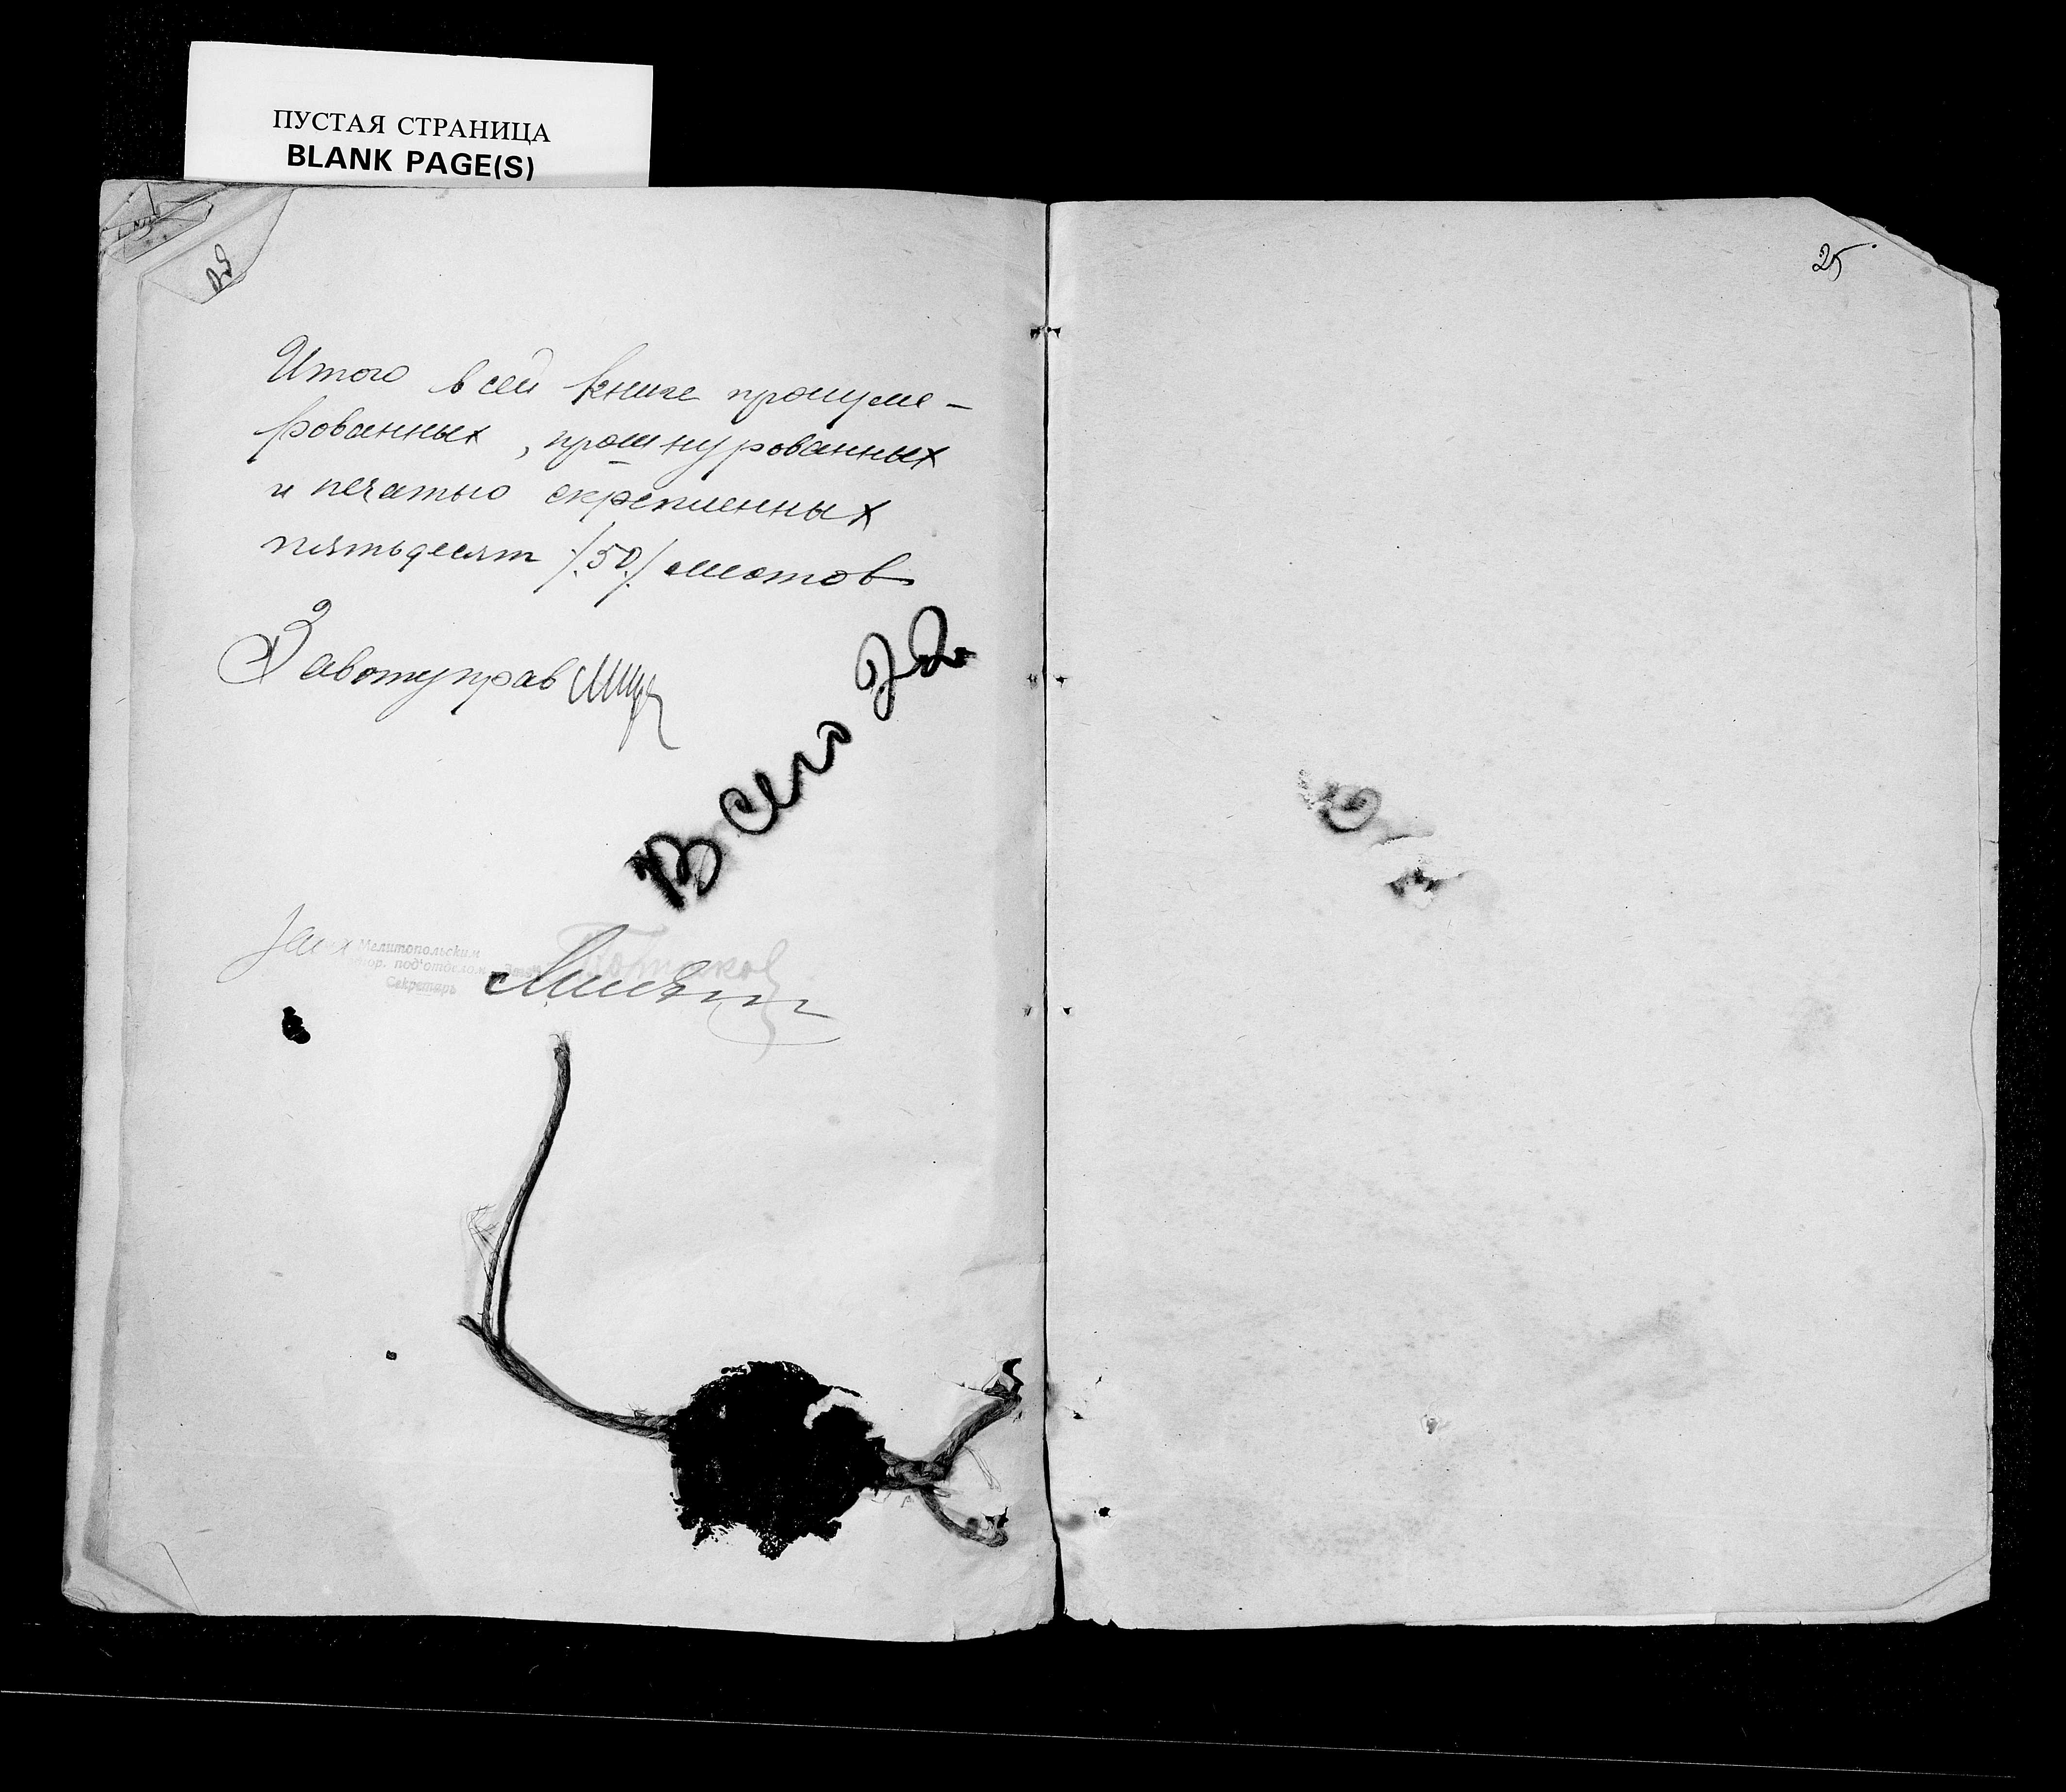 ПУСТАЯ СТРАНИЦА
BLANK PAGE(S)
25
Итого в сей книге пронуме-
рованных, прошнурованных
и печатью скрепленных
пятьдесят /.50./ листов
Завотуправ
Всего 22
Зав. Мелитопольским
под'отделом
Секретарь